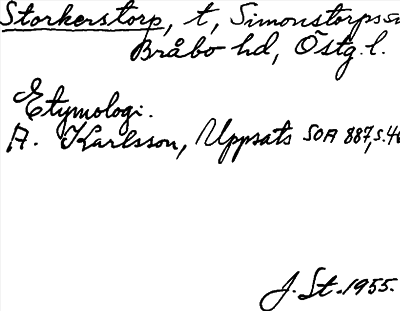 Storkerstorp, t, Simonstorps sn
Bråbo hd, Östg. l.
Etymologi.
A. Karlsson, Uppsats SOA 887, s. 46
J. St. 1955.